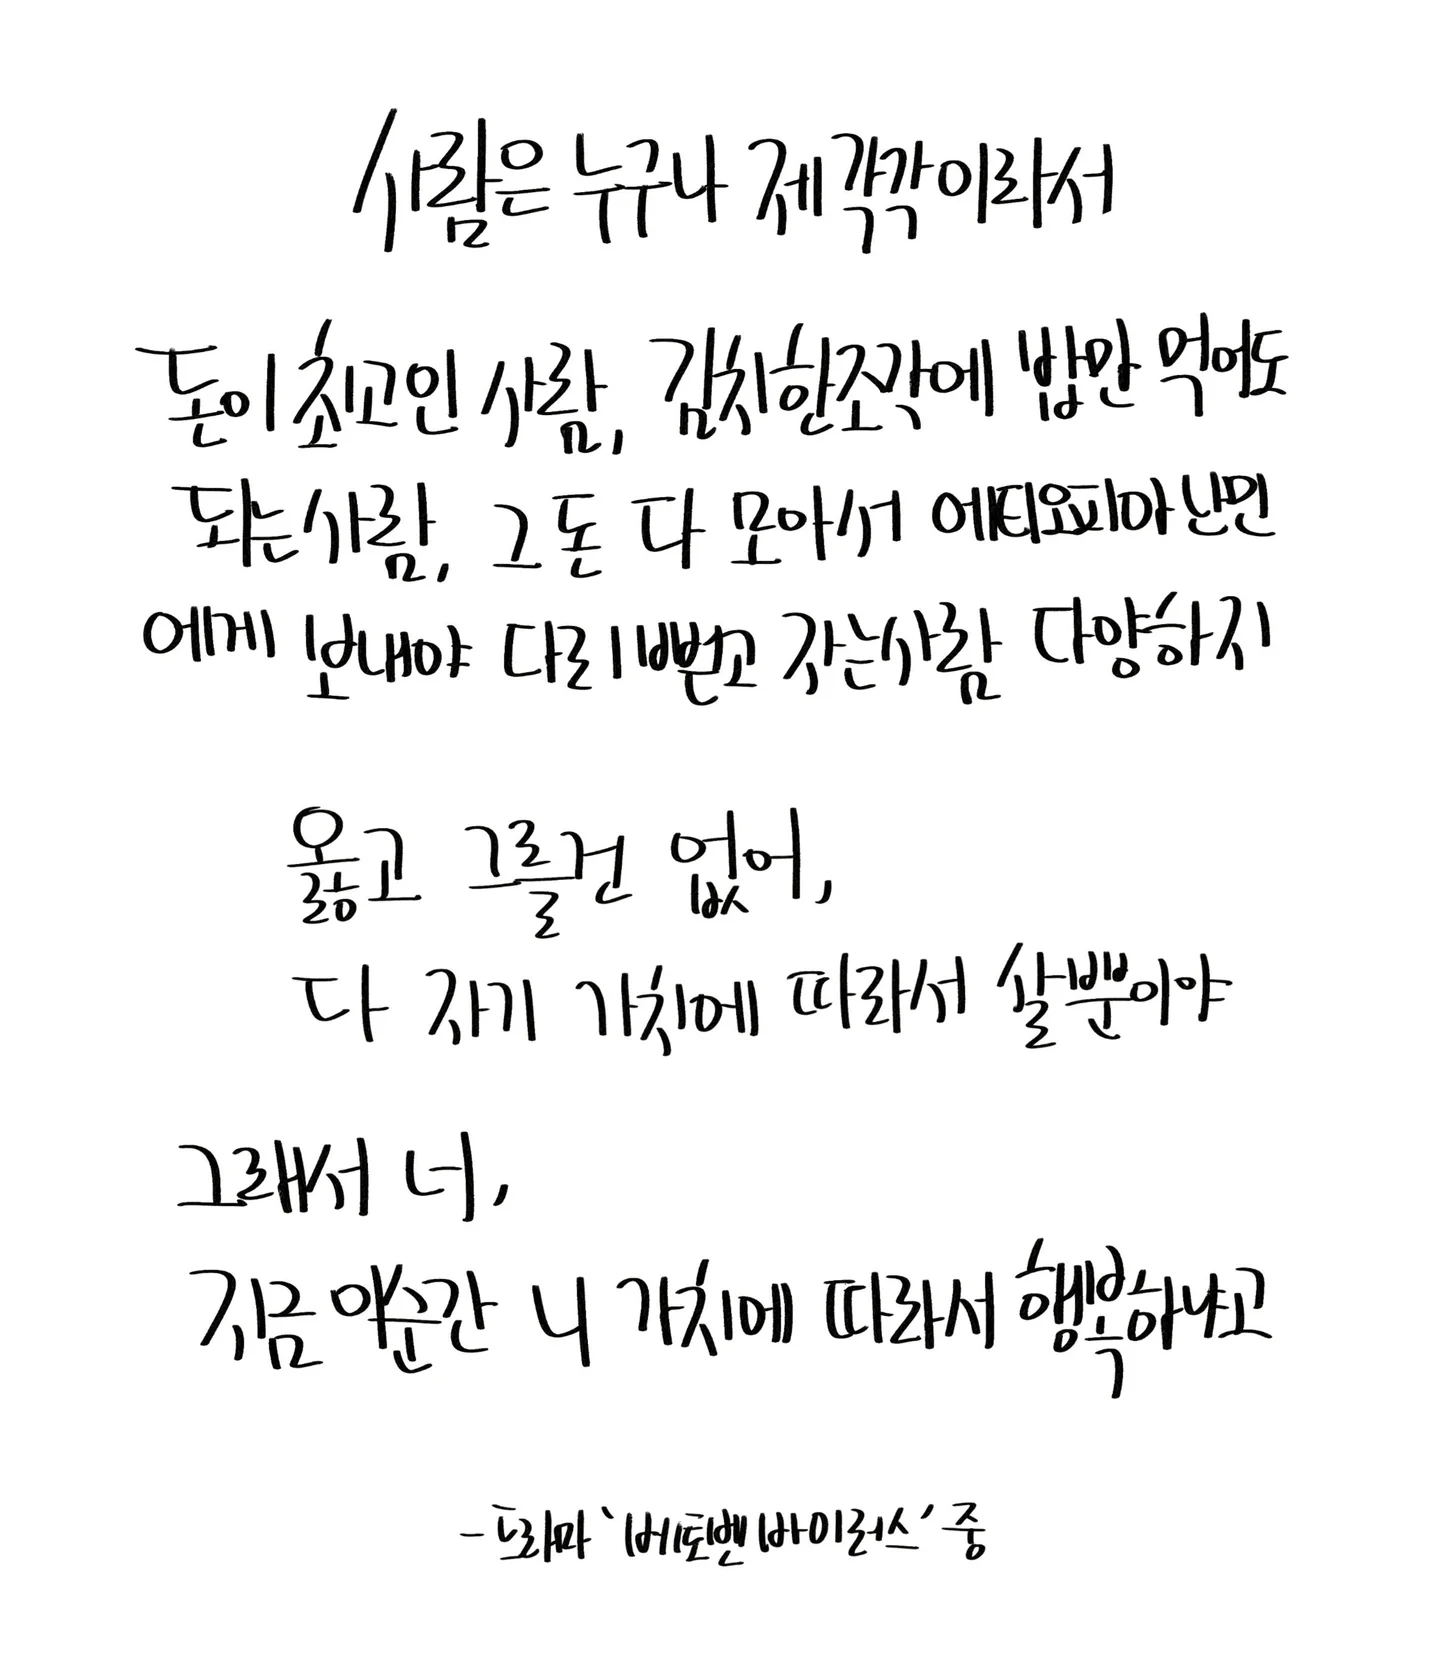 사람은 누구나 제각각이라서
돈이 최고인 사람, 김치한조각에 밥만 먹어도
되는사람, 그 돈 다 모아서 에티오피아 난민
에게 보내야 다리 뻗고 자는사람 다양하지
옳고 그를건 없어,
다 자기 가치에 따라서 살뿐이야
그래서 너,
지금 이순간 니 가치에 따라서 행복하냐고
- 드라마 '베토벤 바이러스' 중